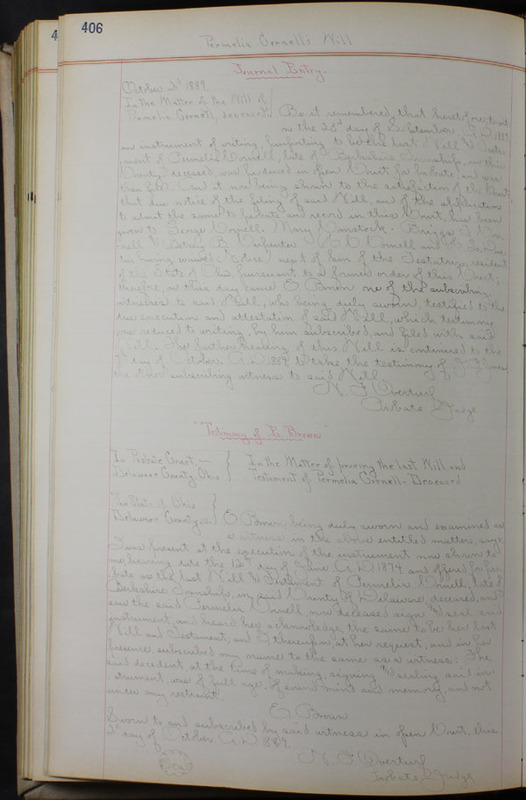 406
Permelia Cornell's Will
Journal Entry.
October 2d 1889
In the Matter of the Will of
Permelia Cornell, deceased
Be it remembered, that heretofore to wit
on the 23d day of September A.D. 1889
an instrument of writing, purporting to be the last Will & Testa-
ment of Permelia Cornell, late of Berkshire Township, in this
County, deceased, was produced in open Court for probate, and was
then filed. And it now being shown to the satisfaction of the Court,
that due notice of the filing of said Will, and of the application
to admit the same to probate and record in this Court, has been
given to George Cornell, Mary Comstock, Briggs
nell,
tin having waived notice, next of kin of the Testatrix, resident
of the State of Ohio, pursuant to a former order of this Court;
therefore, on this day came E Brown one of the subscribing
witnesses to said Will, who being duly sworn testified to the
due execution and attestation of said Will, which testimony
was reduced to writing, by him subscribed, and filed with said
Will. The further hearing of this Will is continued to the
day of October A.D. 1889 to take the testimony of Jones
the other subscribing witness to said Will.
N. F. Overturf
Probate Judge
"Testimony of E. Brown"
In Probate Court,
Delaware County, Ohio
In the Matter of proving the last Will and
Testament of Permelia Cornell, Deceased
The State of Ohio
Delaware County, ss.
E Brown being duly sworn and examined as
a witness in the above entitled matter, says
I was present at the execution of the instrument now shown to
me, bearing date the 12th day of June A.D. 1874 and offered for pro-
bate as the last Will & Testament of Permelia Cornell, late of
Berkshire Township, in said County of Delaware, deceased, and
saw the said Permelia Cornell now deceased sign & seal said
instrument, and heard her acknowledge the same to be her last
Will and Testament, and I thereupon at her request, and in her
presence, subscribed my name to the same as a witness; The
said decedent, at the time of making, signing & sealing said in-
strument, was of full age, of sound mind and memory, and not
under any restraint.
E. Brown
Sworn to and subscribed by said witness in open Court, this
2d day of October A.D. 1889.
Seal
N. F. Overturf
Probate Judge